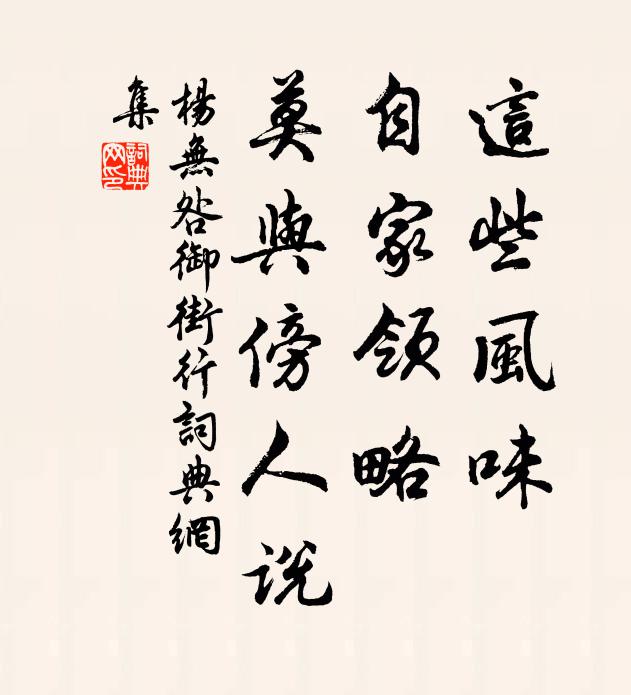 這些風味
自家領略
莫與傍人説
楊無咎御街行詞典網
集
詞典網印